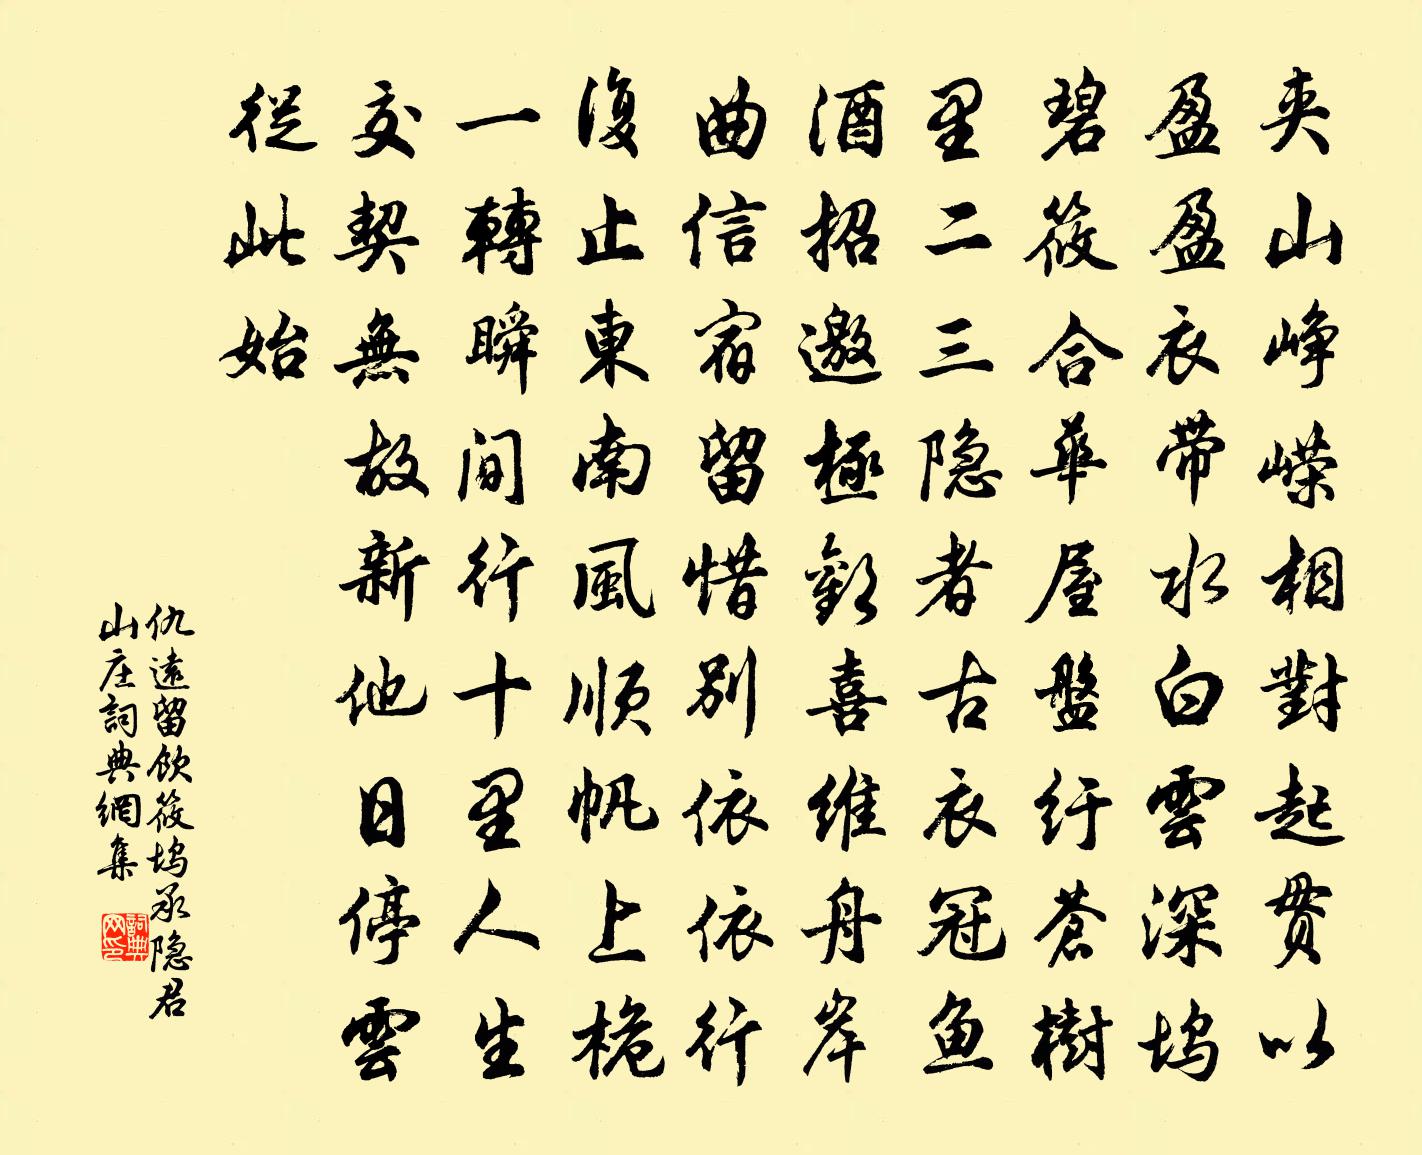 夹山峥嵘相對起贯以
盈盈衣带水白雲深坞
碧筱合華屋盤纡蒼樹
里二三隐者古衣冠鱼
酒招邀極歡喜维舟岸
曲信宿留惜别依依行
復止東南風顺帆上桅
一轉瞬间行十里人生
交契無故新他日停雲
從此始
仇遠留飲筱坞承隐君
山庄詞典網集
詞典网